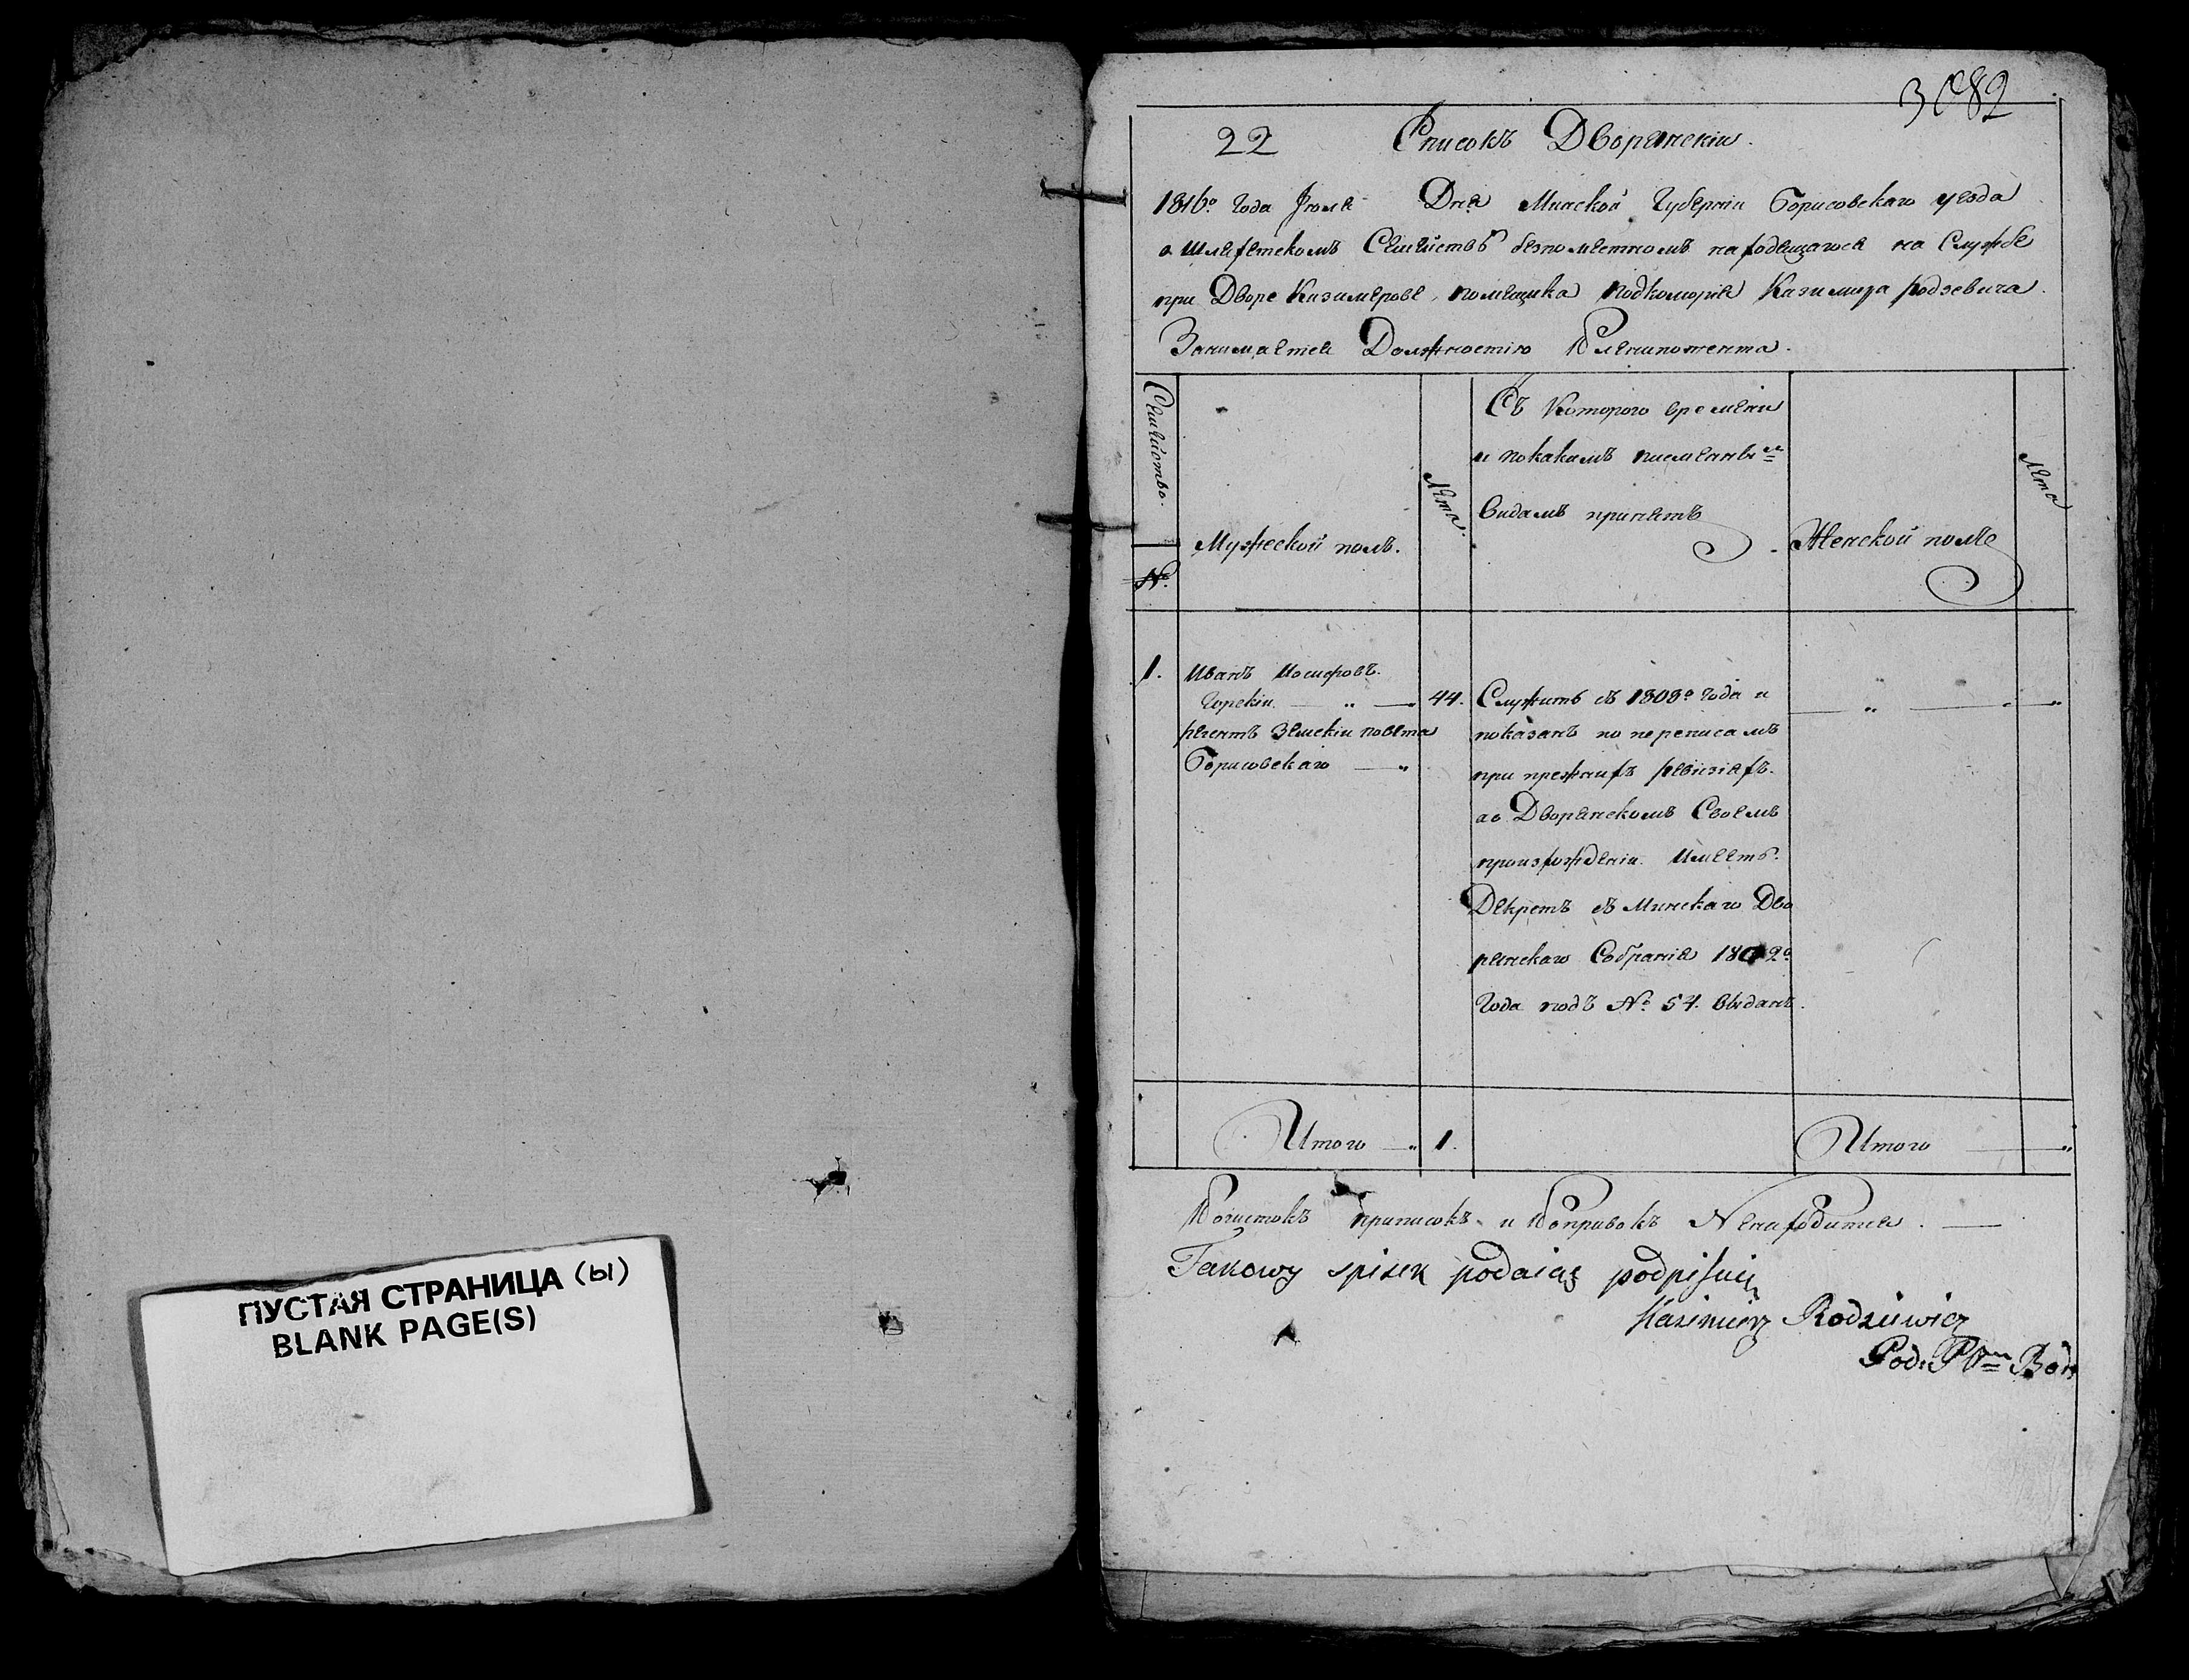 ПУСТАЯ СТРАНИЦА (Ы)
BLANK PAGE(S)
3082
22 Списокъ Дворянскіи.
1816о Года Іюля Дня Минской Губерніи Борисовскаго уезда
о Шляхетскомъ Семействѣ безпоместномъ находящагося на Службе
при Дворе Казимерове, помещика Подкоморія Казимира Родзевича.
Занимается Должностію Пленипотента.
Семейство.
№.
Мужеской полъ.
Лета.
Съ Которого времени
и покакимъ писменъы=
видамъ принятъ
Женской полъ
Лета
1. Иванъ Иосифовъ.
Горскіи. — „ — 44.
регентъ Земскіи повета
Борисовскаго — „
Служитъ съ 1808о Года и
показанъ по переписамъ
при прежнихъ ревизіяхъ.
ао Дворянскомъ Своемъ
произхожденіи. Имеетъ.
Декретъ съ Минскаго Дво
рянскаго Собранія 1802о
Года подъ № 54. выданъ.
Итого — „ 1.
Итого — „
Почистокъ приписокъ и Поправокъ Ненаходится. —
Takowy spisek podaiąc podpisuię
Kazimierz Rodziewicz
Pod: Ptu Bor